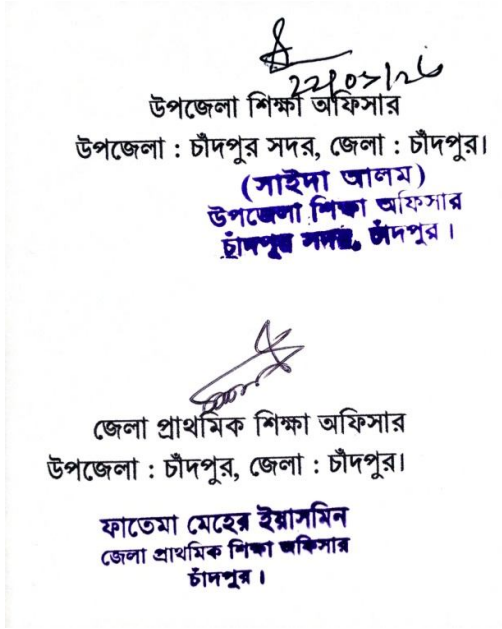 উপজেলা শিক্ষা অফিসার
উপজেলা : চাঁদপুর সদর, জেলা : চাঁদপুর।
(সাইদা আলম)
উপজেলা শিক্ষা অফিসার
চাঁদপুর সদর, চাঁদপুর।
জেলা প্রাথমিক শিক্ষা অফিসার
উপজেলা : চাঁদপুর, জেলা : চাঁদপুর।
ফাতেমা মেহের ইয়াসমিন
জেলা প্রাথমিক শিক্ষা অফিসার
চাঁদপুর।